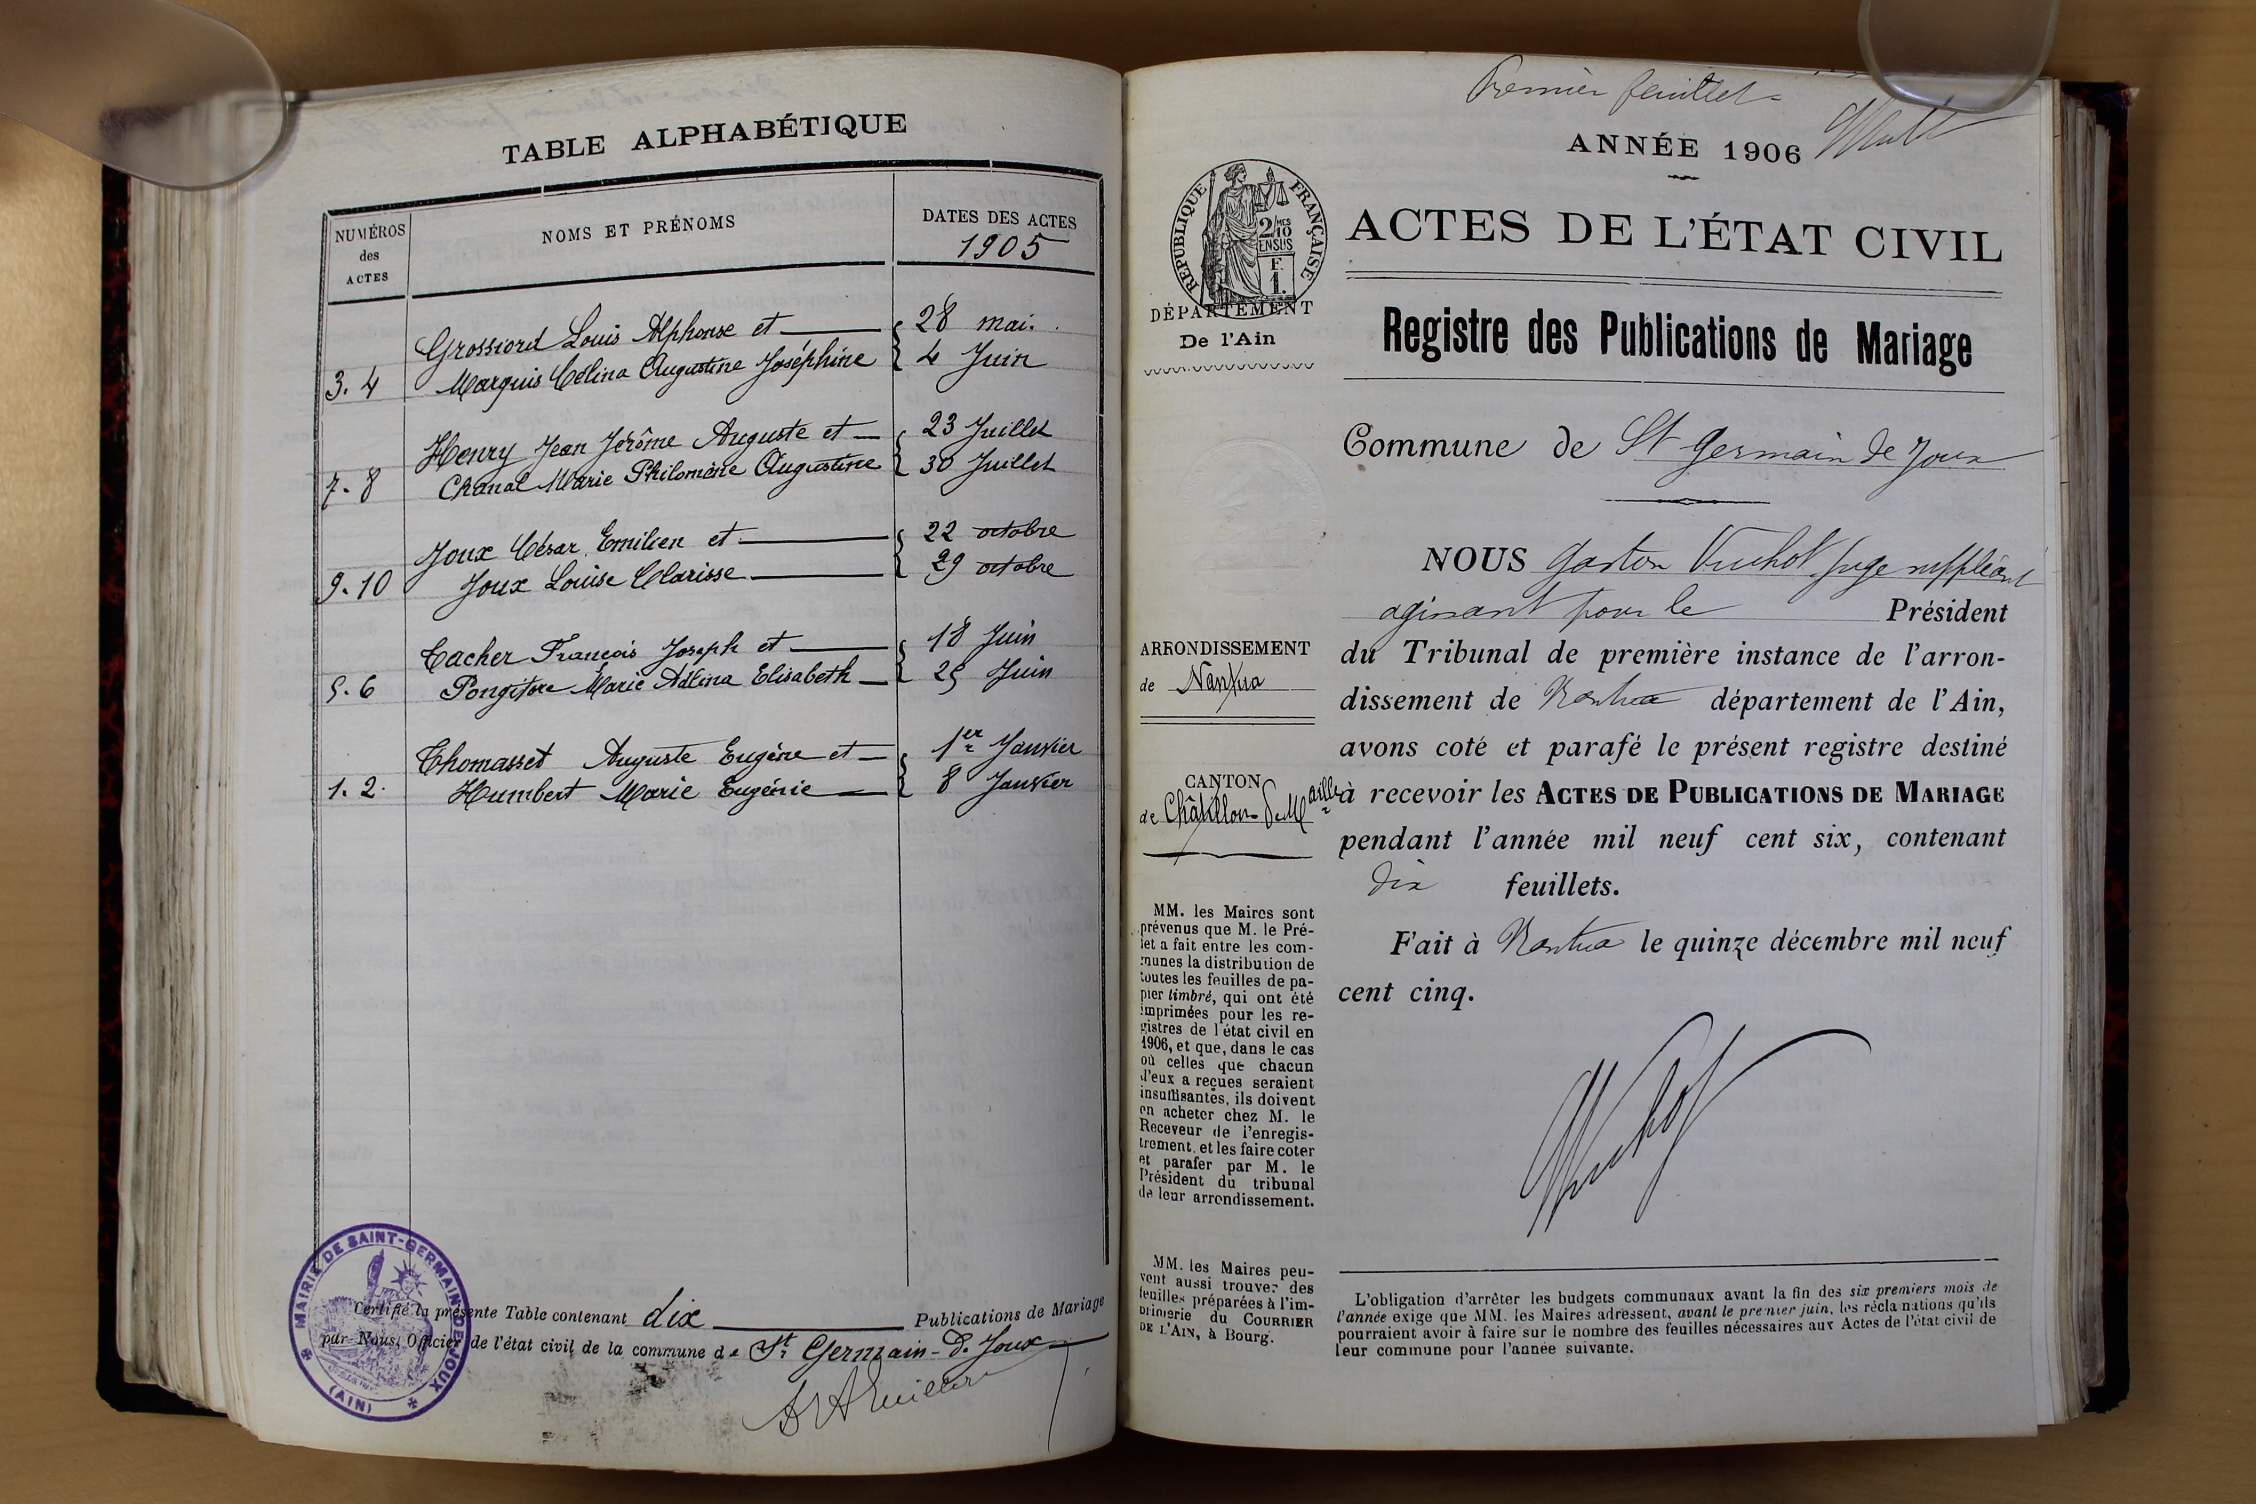 TABLE ALPHABÉTIQUE
NUMÉROS
des
ACTES
NOMS ET PRÉNOMS
DATES DES ACTES
1905
Grossiord Louis Alphonse et
28 mai.
3. 4
Marquis Célina Augustine Joséphine
4 Juin
Henry Jean Jérôme Auguste et
23 Juillet
7. 8
Chanal Marie Philomène Augustine
30 Juillet
Joux César Emilien et
22 octobre
9. 10
Joux Louise Clarisse
29 octobre
Tacher François Joseph et
18 Juin
5. 6
Marie Adlina Elisabeth
25 Juin
Thomasset Auguste Eugène et
1er Janvier
1. 2.
Humbert Marie Eugénie
8 Janvier
MAIRIE DE SAINT-GERMAIN-DE-JOUX
(AIN)
Certifié la présente Table contenant dix Publications de Mariage
par Nous, Officier de l'état civil de la commune de St Germain-d. Joux
Premier feuillet
ANNÉE 1906
RÉPUBLIQUE FRANÇAISE
2/MES
10
EN SUS
F.
1.
DÉPARTEMENT
De l'Ain
ACTES DE L'ÉTAT CIVIL
Registre des Publications de Mariage
Commune de St Germain de Joux
NOUS Gaston Vuchot Juge suppléant
agissant pour le Président
du Tribunal de première instance de l'arron-
dissement de Nantua département de l'Ain,
avons coté et parafé le présent registre destiné
à recevoir les ACTES DE PUBLICATIONS DE MARIAGE
pendant l'année mil neuf cent six, contenant
dix feuillets.
Fait à Nantua le quinze décembre mil neuf
cent cinq.
Vuchot
ARRONDISSEMENT
de Nantua
CANTON
de Châtillon-de-Michaille
MM. les Maires sont
prévenus que M. le Pré-
fet a fait entre les com-
munes la distribution de
toutes les feuilles de pa-
pier timbré, qui ont été
imprimées pour les re-
gistres de l'état civil en
1906, et que, dans le cas
où celles que chacun
d'eux a reçues seraient
insuffisantes, ils doivent
en acheter chez M. le
Receveur de l'enregis-
trement, et les faire coter
et parafer par M. le
Président du tribunal
de leur arrondissement.
MM. les Maires peu-
vent aussi trouver des
feuilles préparées à l'im-
primerie du COURRIER
DE L'AIN, à Bourg.
L'obligation d'arrêter les budgets communaux avant la fin des six premiers mois de
l'année exige que MM. les Maires adressent, avant le premier juin, les réclamations qu'ils
pourraient avoir à faire sur le nombre des feuilles nécessaires aux Actes de l'état civil de
leur commune pour l'année suivante.